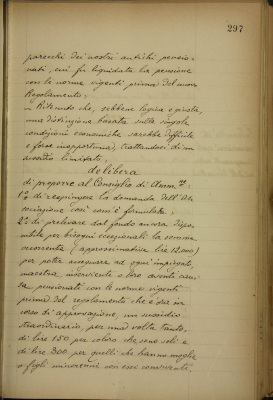 297
parecchi dei nostri antichi pensio-
nati, cui fu liquidata la pensione
con le norme vigenti prima del nuovo
Regolamento;
— Ritenuto che, sebbene logica e giusta,
una distinzione basata sulle singole
condizioni economiche sarebbe difficile
e forse inopportuna, trattandosi di un
assedio limitato,
delibera
di proporre al Consiglio di Amm.ne
1°) di respingere la domanda dell'As-
sociazione così com'è formulata;
2°) di prelevare dal fondo ancora dispo-
nibile per bisogni eccezionali la somma
occorrente (approssimativa lire 12.000)
per potere assegnare ad ogni impiegato,
maestra, inserviente o loro aventi cau-
sa, pensionati con le norme vigenti
prima del regolamento che è ora in
corso di approvazione, un sussidio
straordinario, per una volta tanto,
di lire 150 per coloro che sono soli e
di lire 300 per quelli che hanno moglie
o figli minorenni con essi conviventi.